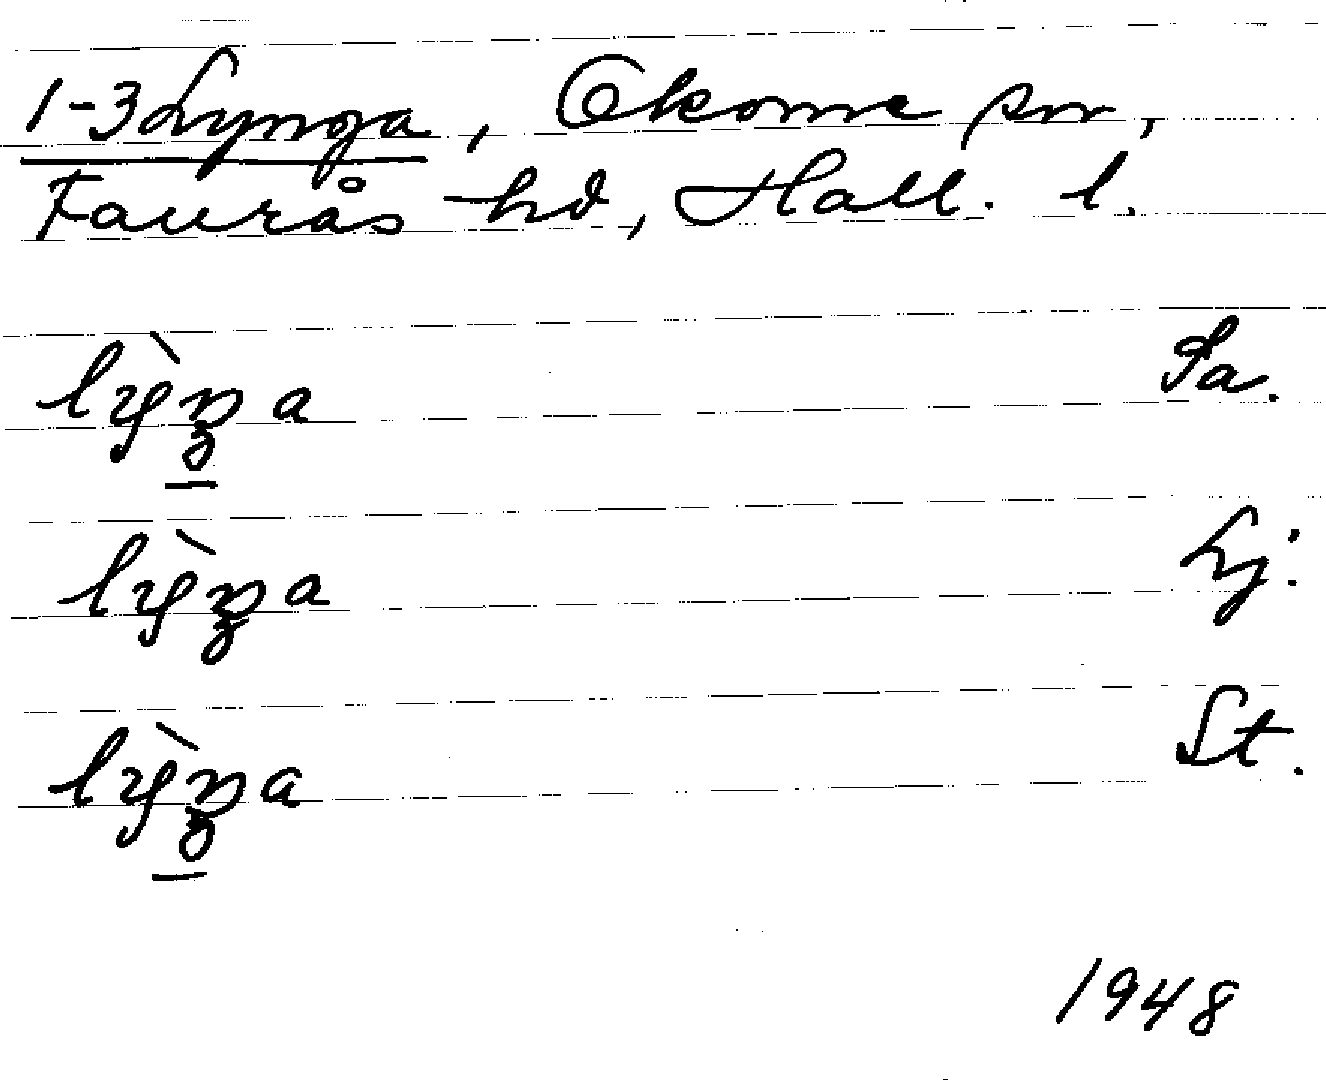 1-3 Lynga, Okome sn,
Faurås hd, Hall. l.
lỳŋa Sa.
lỳŋa Lj.
lỳŋa St.
1948